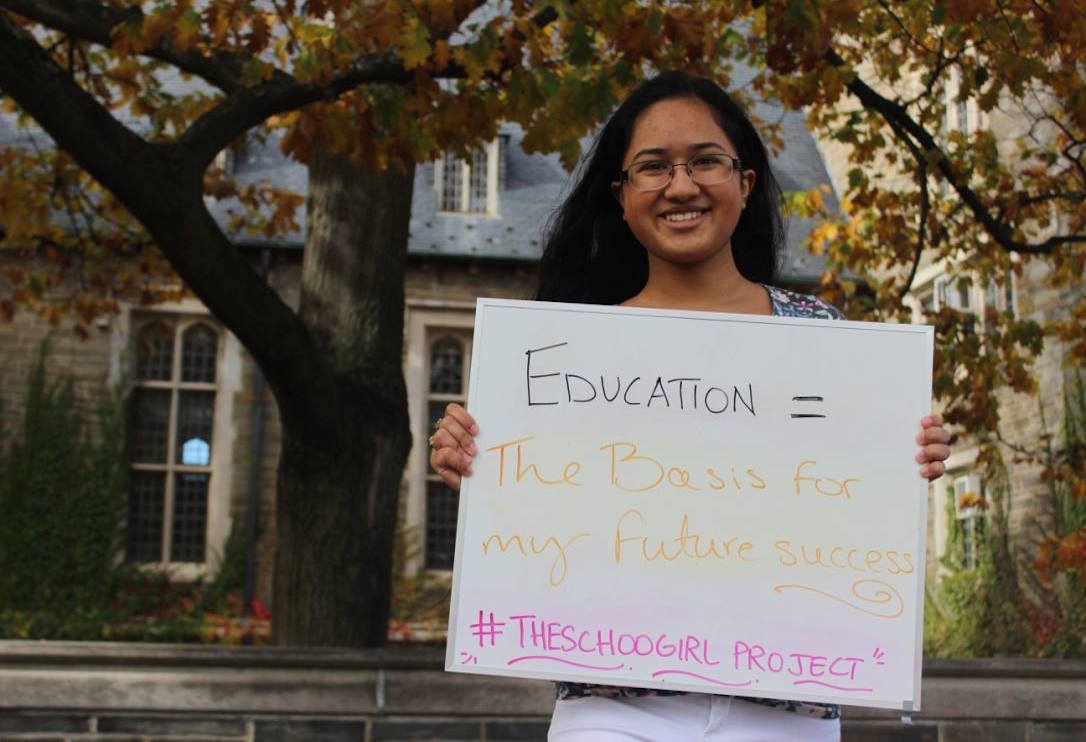 EDUCATION =
The Basis for
my future success
#THESCHOOGIRL PROJECT"